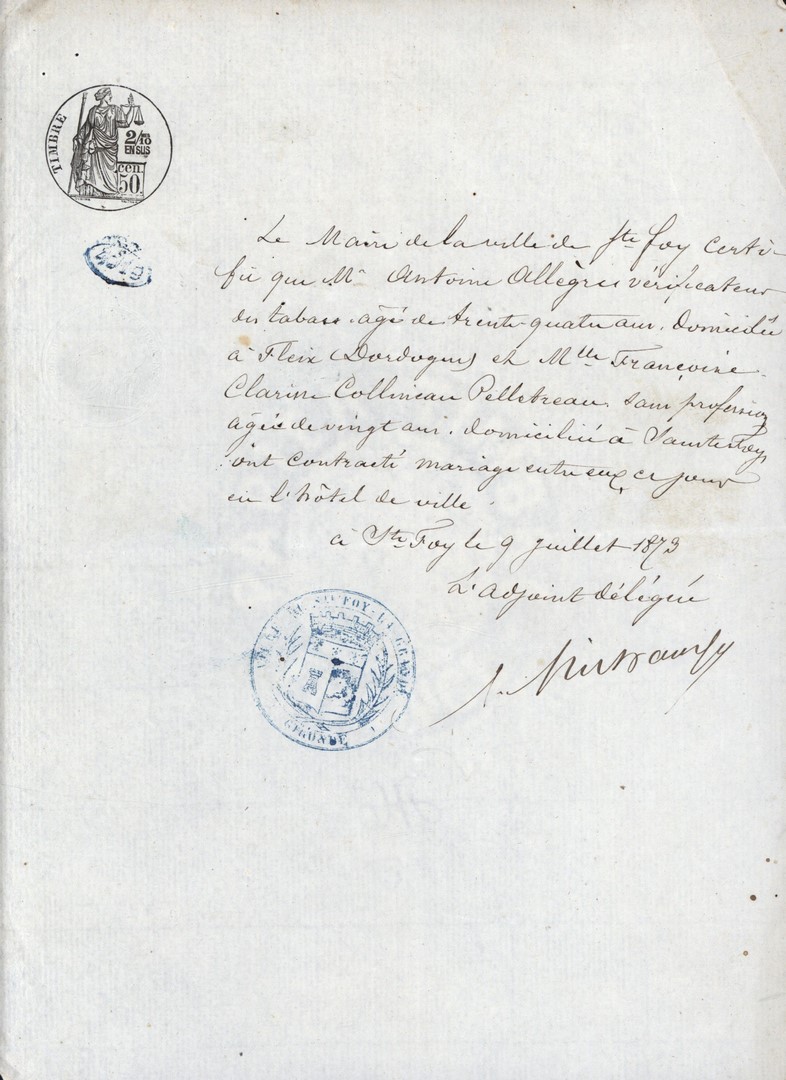 TIMBRE
2/10
EN SUS
cen.
50.
Le Maire de la ville de Ste Foy certi-
fie que Mr Antoine Allègre vérificateur
des tabacs. agé de trente quatre ans. domicilié
à Fleix (Dordogne) et Mlle Françoise
Clarisse Collineau Pelletreau. sans profession
agée de vingt ans. domiciliée à Sainte Foy
ont contracté mariage entre eux ce jour
en l'hôtel de ville
à Ste Foy le 9 juillet 1873
L'adjoint délégué
STE FOY LA GRANDE
GIRONDE